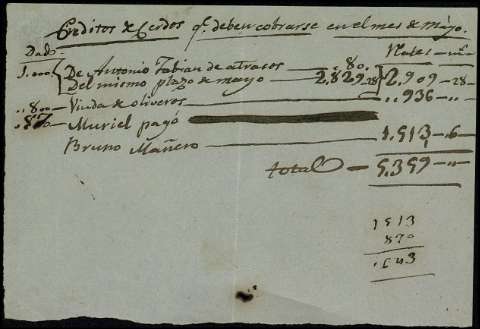 Creditos de Cerdos q.e deben cobrarse en el mes de mayo.
Dado
1.000 De Antonio Fabian de atrasos 80.
Del mismo plazo de mayo 2.829 28 2.909 28
800 Viuda de oliveros 936
870 Muriel pagó
Bruno Mañero 1.513 6
total 5.359
1513
870
643